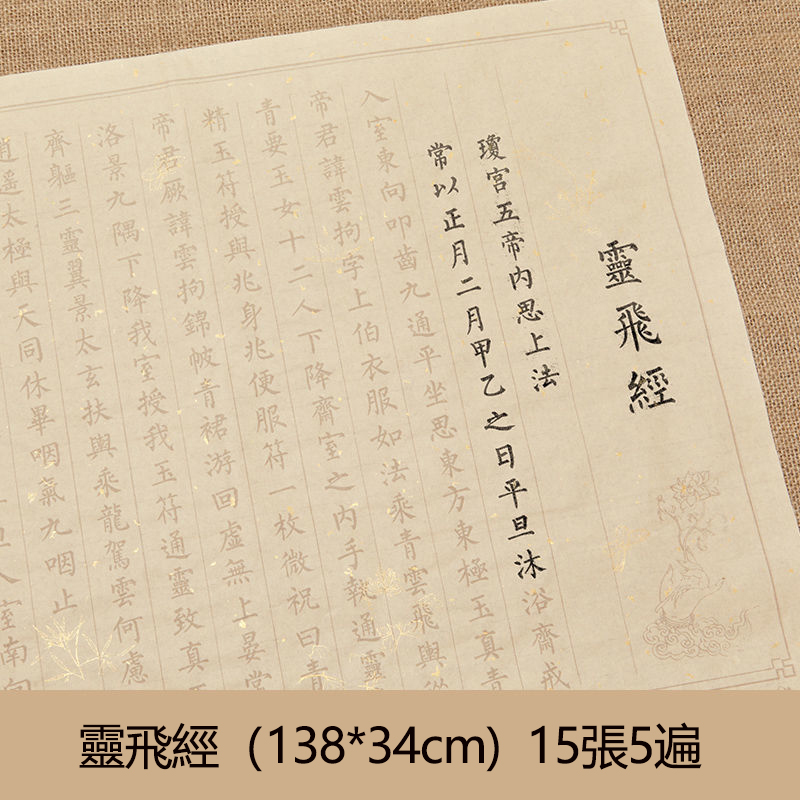 靈飛經
瓊宮五帝内思上法
常以正月二月甲乙之日平旦沐浴齋戒
入室東向叩齒九通平坐思東方東極玉真青
帝君諱雲拘字上伯衣服如法乘青雲飛輿從
青要玉女十二人下降齋室之内手執通靈
精玉符授與兆身兆便服符一枚微祝曰青
帝君厥諱雲拘錦帔青裙游回虛無上晏常
洛景九隅下降我室授我玉符通靈致真五
齊軀三靈翼景太玄扶輿乘龍駕雲何慮
逍遙太極與天同休畢咽氣九咽止
入室南向
靈飛經（138*34cm）15張5遍